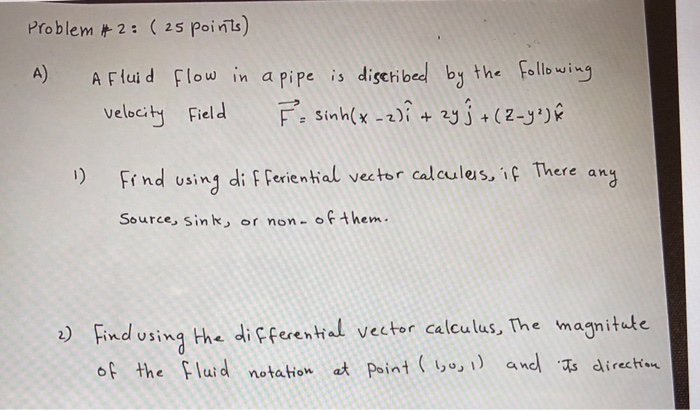 Problem # 2: ( 25 points)
A) A Fluid flow in a pipe is discribed by the following
velocity Field F⃗ = sinh(x - z)î + 2y ĵ + (z-y²)k̂
1) Find using differiential vector calculers, if There any
Source, sink, or non-of them.
2) Find using the differential vector calculus, The magnitute
of the fluid notation at point (1,0,1) and Its direction